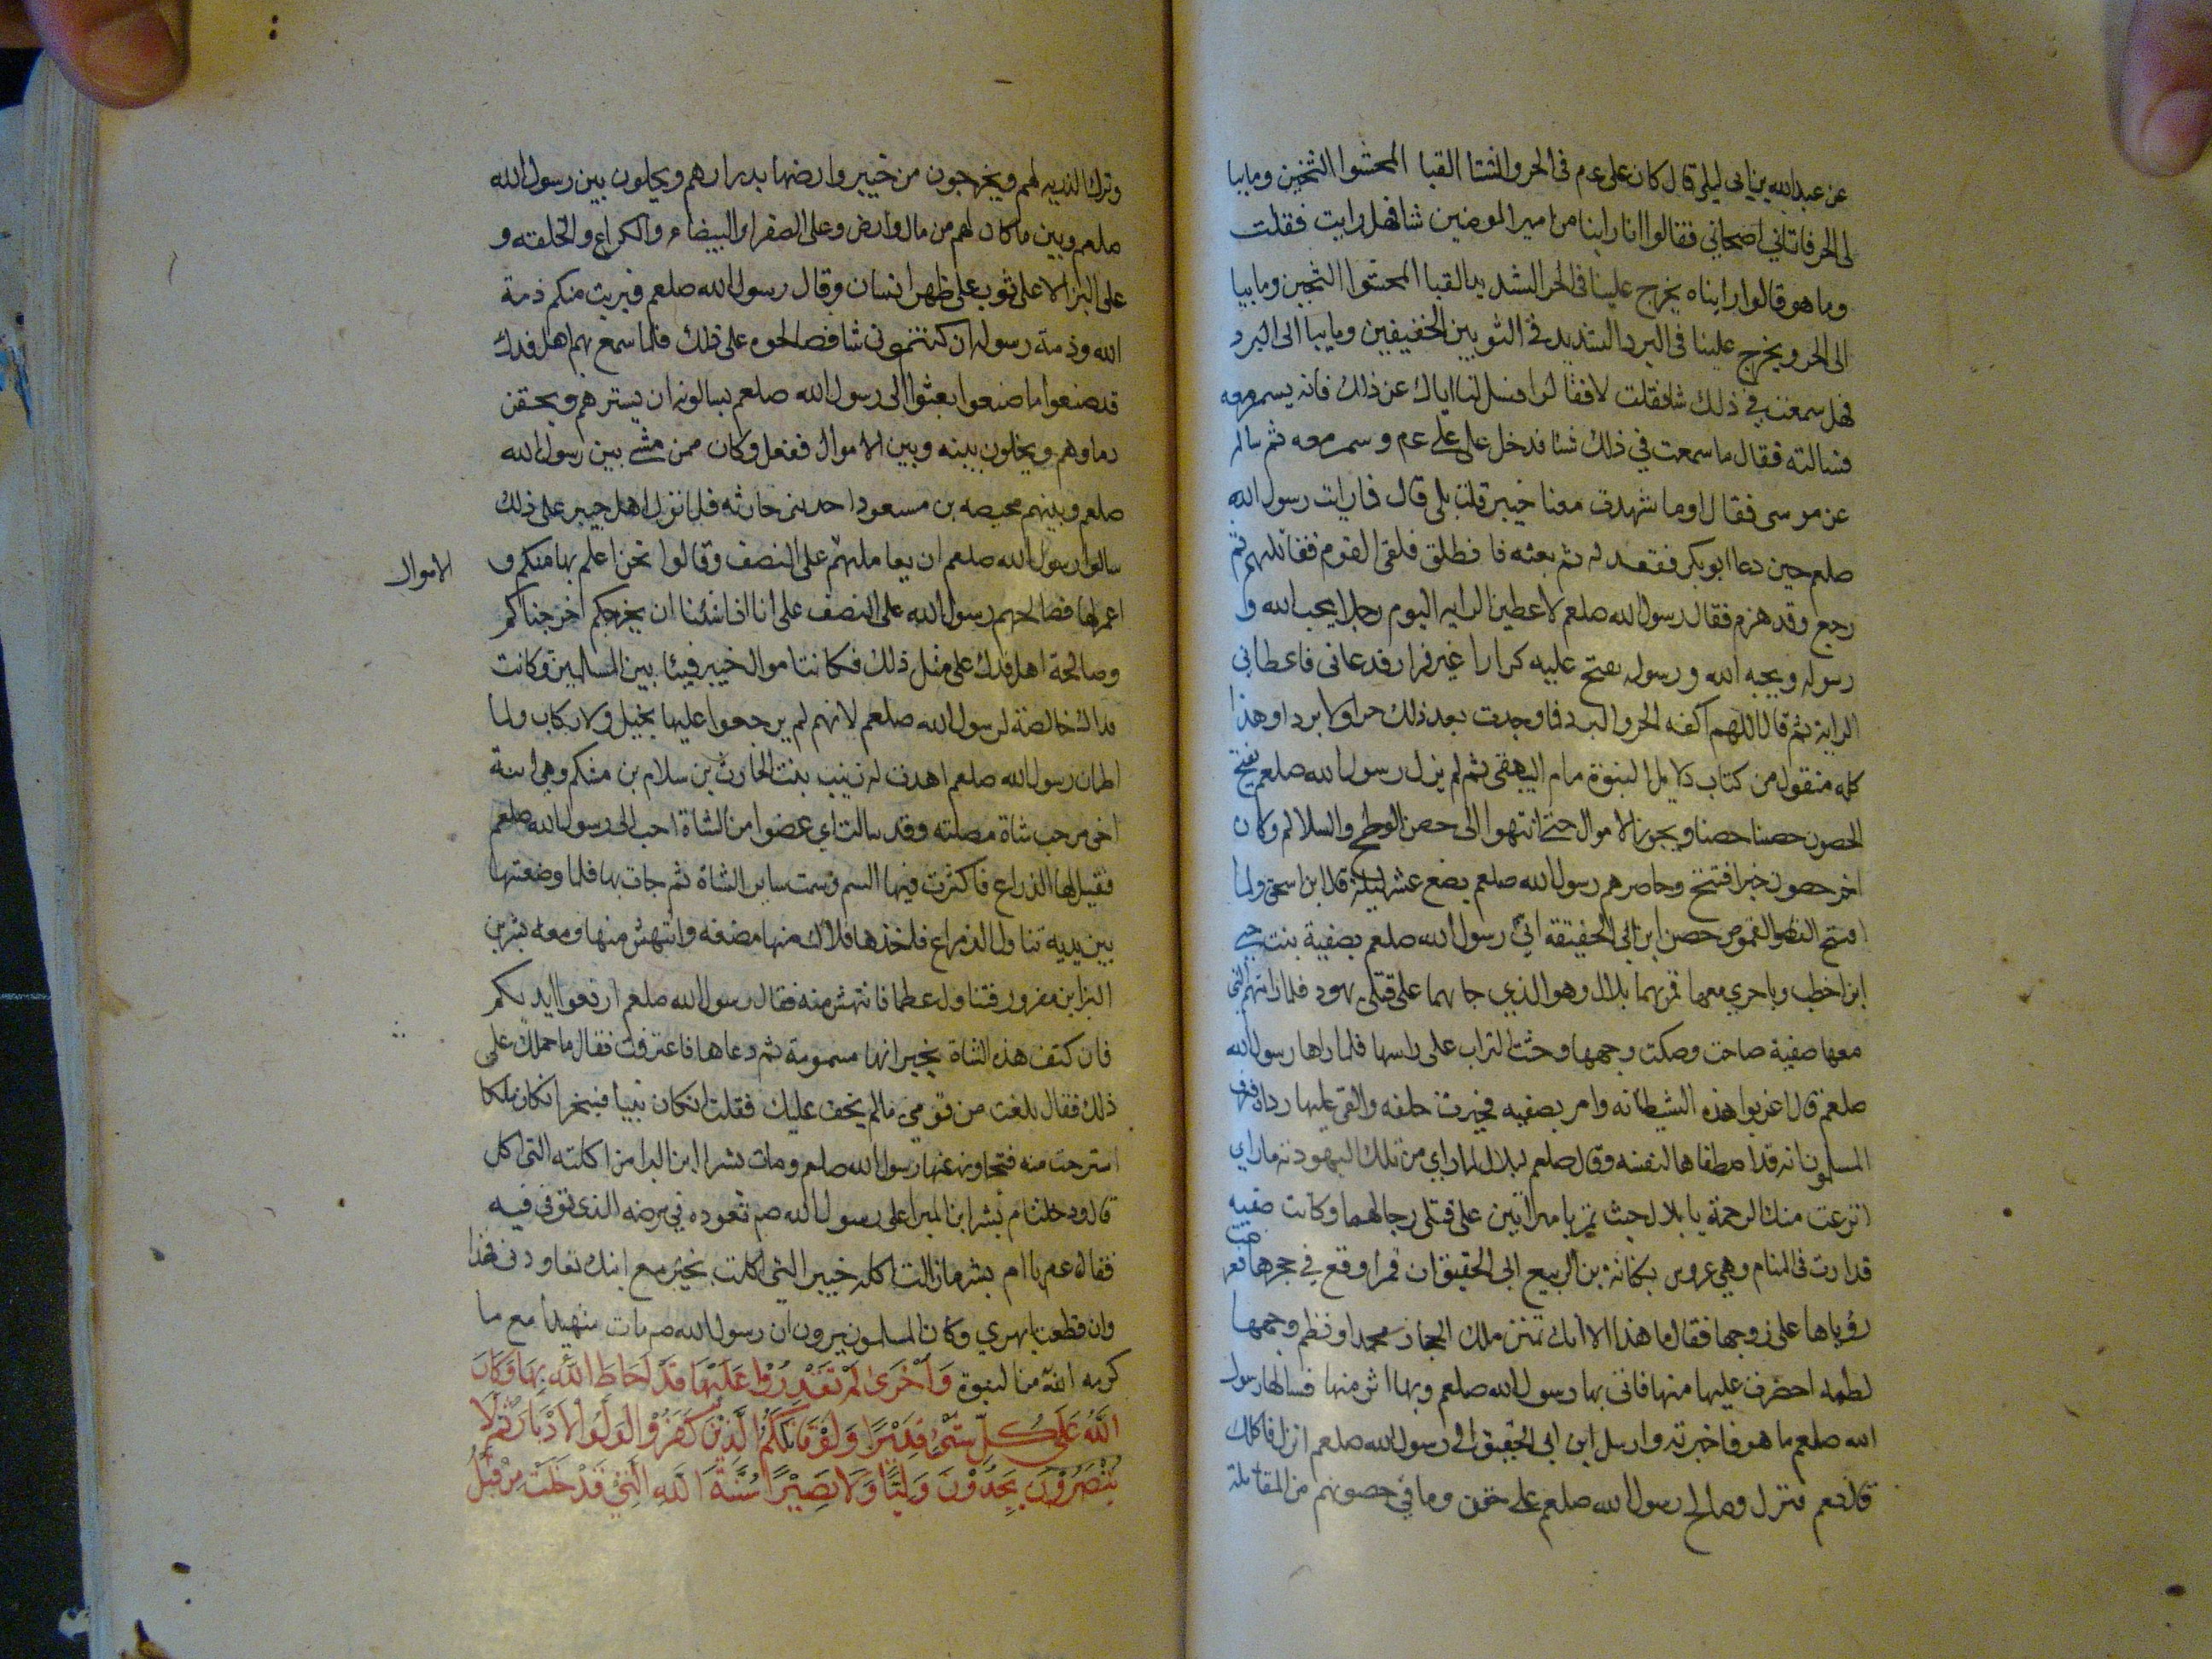 عن عبد الله بن ابى ليلى قال كان على عم فى الحر والشتا القبا المحشوا الثخين وما يبا
لى الحر فاتاني اصحابي فقالوا انا راينا من امير المومنين شا فهل رايت فقلت
وما هو قالوا رايناه يخرج علينا فى الحر الشديد بالقبا المحشوا الثخين وما يبا
الى الحر ويخرج علينا فى البرد الشديد فى الثوبين الخفيفين وما يبا الى البرد
فهل سمعت في ذلك شا فقلت لا فقالوا فسل لنا اباك عن ذلك فانه يسمر معه
فسالته فقال ما سمعت في ذلك شا فدخل على على عم وسمر معه ثم ساله
عن موسى فقال اوما شهدت معنا خيبر قلت بلى قال فما رايت رسول الله
صلعم حين دعا ابو بكر فعقد له ثم بعثه فا نطلق فلقى القوم فقاتلهم ثم
رجع وقد هزم فقال رسول الله صلعم لاعطين الرايه اليوم رجلا يحب الله و
رسوله ويحبه الله ورسوله يفتح عليه كرارا غير فرار فدعانى فاعطانى
الراية ثم قال اللهم اكفه الحر والبرد فما وجدت بعد ذلك حرا ولا بردا وهذا
كله منقول من كتاب دلايل النبوة مام البيهقى ثم لم يزل رسول الله صلعم يفتح
الحصون حصنا حصنا ويجوز الاموال حتى انتهوا الى حصن الوطيح والسلالم وكان
اخر حصون خيبر افتتح وحاصرهم رسول الله صلعم بضع عشر ليلة قال ابن اسحق ولما
افتتح القموص حصن ابن ابى الحقيقة اتي رسول الله صلعم بصفية بنت حيى
ابن اخطب وباخرى معها فمر بهما بلال وهو الذي جا بهما على قتلى يهود فلما راتهم التى
معها صفية صاحت وصكت وجهها وحثت التراب على راسها فلما راها رسول الله
صلعم قال اغربوا هذه الشيطانه وامر بصفيه فحيزت خلفه والقى عليها رداه فعرف
المسلمون انه قد اصطفاها لنفسه وقال صلعم لبلال لما راي من تلك اليهوديه ما راي
انزعت منك الرحمة يا بلال حيث تمر بامراتين على قتلى رجالهما وكانت صفيه
قد ارت فى المنام وهى عروس بكنانه بن الربيع ابى الحقيق ان قمرا وقع في حجرها فعرضت
رؤياها على زوجها فقال ما هذا الا انك تمنين ملك الحجاز محمدا ولطم وجهها
لطمه اخضرت عليها منها فاتى بها رسول الله صلعم وبها اثر منها فسالها رسول
الله صلعم ما هو فاخبرته وارسل ابن ابى الحقيق الى رسول الله صلعم انزل فاكلمك
قال نعم فنزل وصالح رسول الله صلعم على حقن وما في حصونهم من المقاتلة
وترك الذريه لهم ويخرجون من خيبر وارضها بدرارهم ويخلون بين رسول الله
صلعم وبين ما كان لهم من مال وارض وعلى الصفرا والبيضاء والكراع والحلقه و
على البز الا على ثوب على ظهر انسان وقال رسول الله صلعم فبريت منكم ذمة
الله وذمة رسوله ان كتمتمونى شا فصالحوه على ذلك فلما سمع بهم اهل فدك
قد صنعوا ما صنعوا بعثوا الى رسول الله صلعم يسالونه ان يسترهم ويحقن
دماوهم ويخلون بينه وبين الاموال ففعل وكان ممن مشى بين رسول الله
صلعم وبينهم محيصه بن مسعود احد بنى حارثه فلما نزل اهل خيبر على ذلك
سالوا رسول الله صلعم ان يعاملهم على النصف وقالوا نحن اعلم بها منكم و
الاموال
اعمر لها فصالحهم رسول الله على النصف على انا اذا شئنا ان يخرجكم اخرجناكم
وصالحة اهل فدك على مثل ذلك فكانت اموال خيبر فيئا بين المسلمين وكانت
فدك خالصة لرسول الله صلعم لانهم لم يرجعوا عليها بخيل ولا ركاب ولما
اطمان رسول الله صلعم اهدت له زينب بنت الحارث بن سلام بن مشكم وهى ابنة
اخى مرحب شاة مصلته وقد سالت اي عضوا من الشاة احب الى رسول الله صلعم
فقيل لها الذراع فاكثرت فيها السم وسمت ساير الشاة ثم جات بها فلما وضعتها
بين يديه تناول الذراع فاخذها فلاك منها مضغه وانتهش منها ومعه بشر بن
البرا بن معرور فتناول عظما فانتهش منه فقال رسول الله صلعم ارفعوا ايديكم
فان كتف هذه الشاة يخبر انها مسمومة ثم دعاها فاعترفت فقال ما حملك على
ذلك فقال بلغت من قومي ما لم يخف عليك فقلت ان كان نبيا فسيخبر ان كان ملكا
استرحت منه فتجاوز عنها رسول الله صلعم ومات بشر ابن البرا من اكلته التى اكل
قال ودخلت ام بشر ابن البرا على رسول الله صم تعوده في مرضه الذى توفى فيه
فقال عم يا ام بشر ما زالت اكله خيبر التى اكلت بخيبر مع ابنك تعاودنى فهذا
وان قطعت ابهري وكان المسلمون يرون ان رسول الله صم مات شهيدا مع ما
كرمه الله من النبوة وَاُخْرَى لَمْ تَقْدِرُوْا عَلَيْهَا قَدْ اَحَاطَ اللّٰهُ بِهَا وَكَانَ
اللّٰهُ عَلَى كُلِّ شَيْءٍ قَدِيْرًا وَلَوْ قَاتَلَكُمُ الَّذِيْنَ كَفَرُوْا لَوَلَّوُا الْاَدْبَارَ ثُمَّ لَا
يُنْصَرُوْنَ يَجِدُوْنَ وَلِيًّا وَلَا نَصِيْرًا سُنَّةَ اللّٰهِ الَّتِيْ قَدْ خَلَتْ مِنْ قَبْلُ